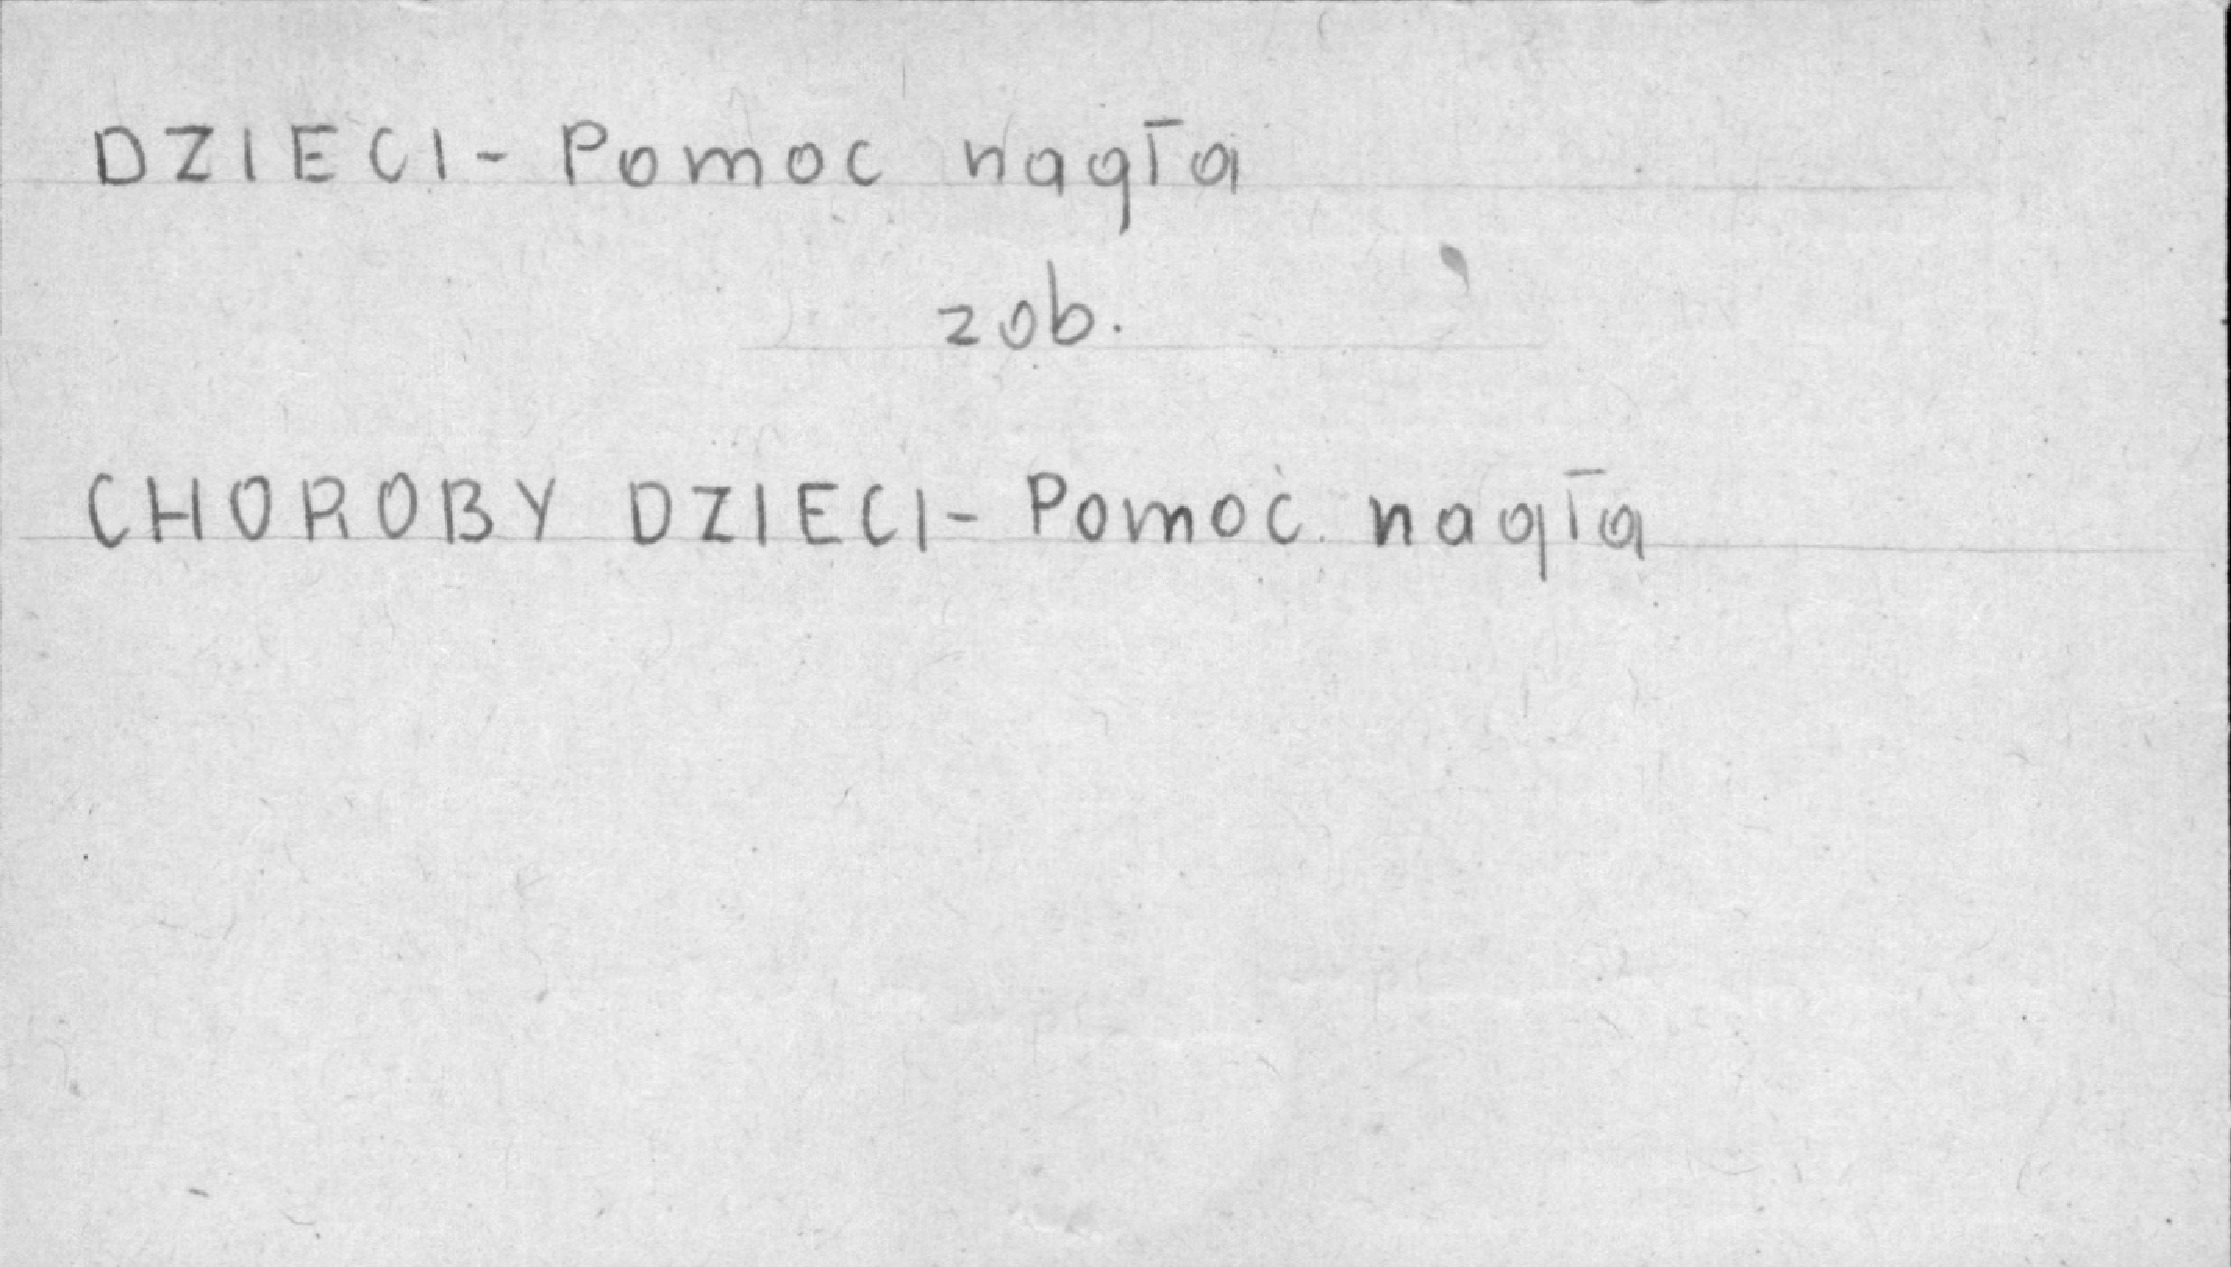 DZIECI - Pomoc nagła
zob.
CHOROBY DZIECI - Pomoc nagła